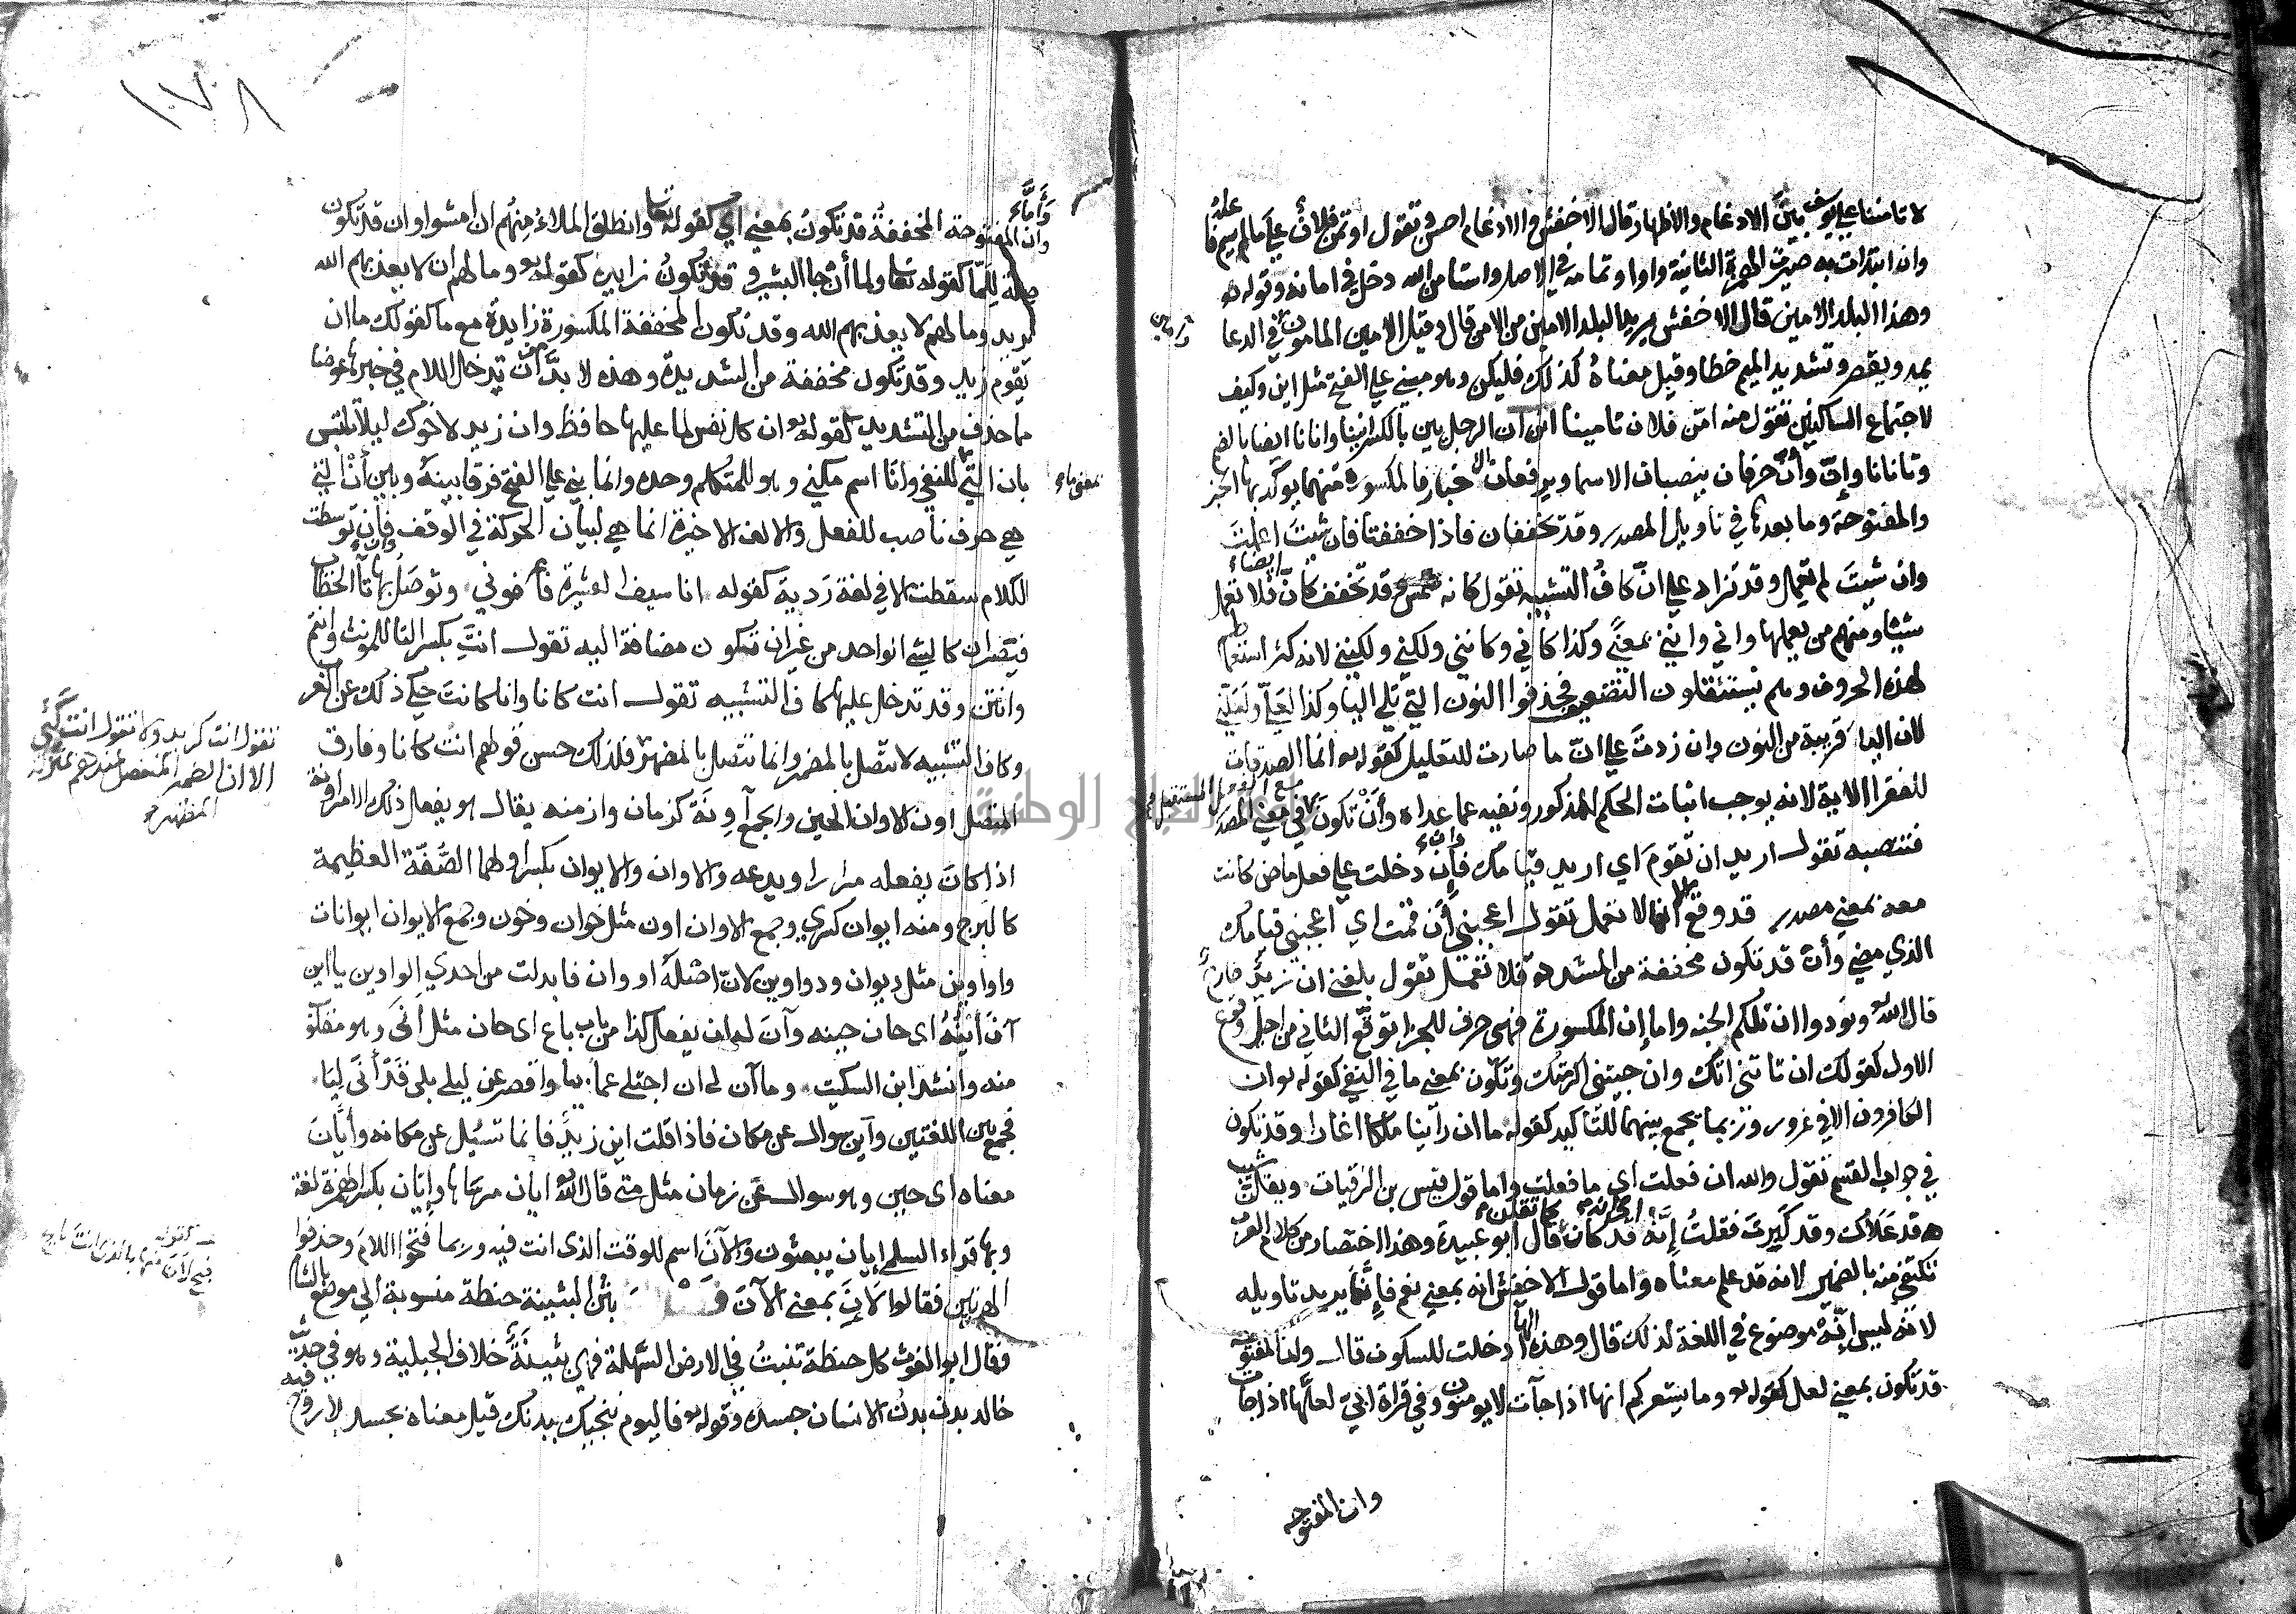 لا تامنا علي يوسف بين الادغام والاظهار قال الاخفش والادغام احسن وتقول اوتمن فلان علي مالم يسم فاعله
وان ابتدات به صيرت الهمزة الثانية واوا وتمامه في الاصل واستامن اليه دخل في امانه وقوله تع
وهذا البلد الامين قال الاخفش يريد البلد الامين من الامن قال وقيل الامين المامون وامين في الدعا
يمد ويقصر وتشديد الميم خطا وقيل معناه كذلك فليكن وهو مبني علي الفتح مثل اين وكيف
لاجتماع الساكنين تقول منه امن فلان تامينا انن ان الرجل ين بالكسر انينا وانانا ايضا بالضم
وتانانا وإنّ وأنّ حرفان ينصبان الاسما ويرفعان الاخبار فالمكسورة منهما يوكد بها الخبر
والمفتوحة وما بعدها في تاويل المصدر وقد تخففان فاذا خففتا فان شئت اعملت
وان شيت لم تعمل وقد تزاد علي انّ كاف التشبيه تقول كانه شمس وقد تخفف كان ايضا فلا تعمل
شيئا ومنهم من يعملها واني وانني بمعني وكذا كاني وكانني ولكني ولكنني لانه كثر استعمالهم
لهذه الحروف وهم يستثقلون التضعيف فحذفوا النون التي تلي اليا وكذا لعلي ولعلني
لان اليا قريبة من النون وان زدت علي انّ ما صارت للتعليل كقوله تع انما الصدقات
للفقرا الاية لانه يوجب اثبات الحكم للمذكور ونفيه عما عداه وأن تكون مع الفعل المستقبل في معني المصدر
فتنصبه تقول اريد ان تقوم اي اريد قيامك فإن دخلت علي فعل ماض كانت
معه بمعني مصدر قد وقع الا انها لا تعمل تقول اعجبني أن قمت اي اعجبني قيامك
الذي مضي وأن قد تكون مخففة من المشددة فلا تعمل تقول بلغني ان زيد خارج
قال الله تع ونودوا ان تلكم الجنه واما إن المكسورة فهي حرف للجزا توقع الثاني من اجل وقوع
الاول كقولك ان تاتني اتك وان جيتني اكرمتك وتكون بمعني ما في النفي كقوله تع ان
الكافرون الا في غرور وربما يجمع بينهما للتاكيد كقوله ما ان راينا ملكا اغارا وقد تكون
في جواب القسم تقول والله ان فعلت اي ما فعلت واما قول قيس بن الرقيات ويقلن شيب
قد علاك وقد كبرت فقلت إنه اي انه قد كان كما تقلن قال ابو عبيدة وهذا اختصار من كلام العرب
تكتفي منه بالضمير لانه قد علم معناه واما قول الاخفش انه بمعني نعم فإنما يريد تاويله
لا انه ليس انّه موضوع في اللغة لذلك قال وهذه الها ادخلت للسكون قال وأن المفتوحة
قد تكون بمعني لعل كقوله تع وما يشعركم انها اذا جآت لا يومنون وفي قراة ابي لعلها اذا جات
وان المفتوحه
١٧٨
وأما أن المفتوحة المخففة قد تكون بمعني اي كقوله تعا وانطلق الملاء منهم ان امشوا وان قد تكون
صلة للمّا كقوله تعا ولما أن جا البشير وقد تكون زايدة كقوله تع وما لهم ان لا يعذبهم الله
يريد وما لهم لا يعذبهم الله وقد تكون المخففة المكسورة زايدة مع ما كقولك ما ان
يقوم زيد وقد تكون مخففة من الشديدة وهذه لا بد من ان تدخل اللام في خبرها عوضا
ما حذف من التشديد كقوله تع ان كل نفس لما عليها حافظ وان زيد لاخوك ليلا تلتبس
بان التي للنفي وأنا اسم مكني وهو للمتكلم وحده وانما بني علي الفتح فرقا بينه وبين أن التي
هي حرف ناصب للفعل والالف الاخيرة انما هي لبيان الحركة في الوقف فإن توسطت
الكلام سقطت الا في لغة ردية كقوله انا سيف العشيرة فاعرفوني وتوصل بها تا الخطاب
فيصيران كالشي الواحد من غير ان تكون مضافة اليه تقول انت بكسر التا للمونث وانتم
وانتن وقد تدخل عليها كاف التشبيه تقول انت كانا وانا كانت حكي ذلك عن العرب
وكاف التشبيه لا تتصل بالمضمر وانما تتصل بالمظهر فلذلك حسن قولهم انت كانا وفارق
المتصل اون الاوان الحين والجمع آونة كزمان وازمنه يقال هو يفعل ذلك الامر اونة
اذا كان يفعله مرارا ويدعه والاوان والايوان بكسر اولهما الصفة العظيمة
كالبرج ومنه ايوان كسري وجمع الاوان اون مثل خوان وخون وجمع الايوان ايوانات
واواوين مثل ديوان ودواوين لان اصله اووان فابدلت من احدي الواوين يا اين
آن أينه اي حان حينه وآن له ان يفعل كذا من باب باع اي حان مثل أني وهو مقلوب
منه وانشد ابن السكيت وما آن لي ان تجلي عمايتي واقصر عن ليلي بلي قد أني ليا
فجمع بين اللغتين وأين سوال عن مكان فاذا قلت اين زيد فانما تسئل عن مكانه وأيان
معناه اي حين وهو سوال عن زمان مثل متي قال الله تع ايان مرساها وإيان بكسر الهمزة لغة
وبها قراء السلمي ايان يبعثون والآن اسم للوقت الذي انت فيه وربما فتحوا اللام وحذفوا
الهمزتين فقالوا لان بمعني الآن بثن البثينة حنطة منسوبة الي موضع بالشام
وقال ابو الغوث كل حنطة تنبت في الارض السهلة فهي بثينة خلاف الجبلية وهو في حديث
خالد بدن بدن الانسان جسده وقوله تع فاليوم ننجيك ببدنك قيل معناه بجسد لا روح فيه
تقول انت كزيد ولا تقول انت كي
الا ان الضمير المنفصل عندهم بمنزلة
المظهر